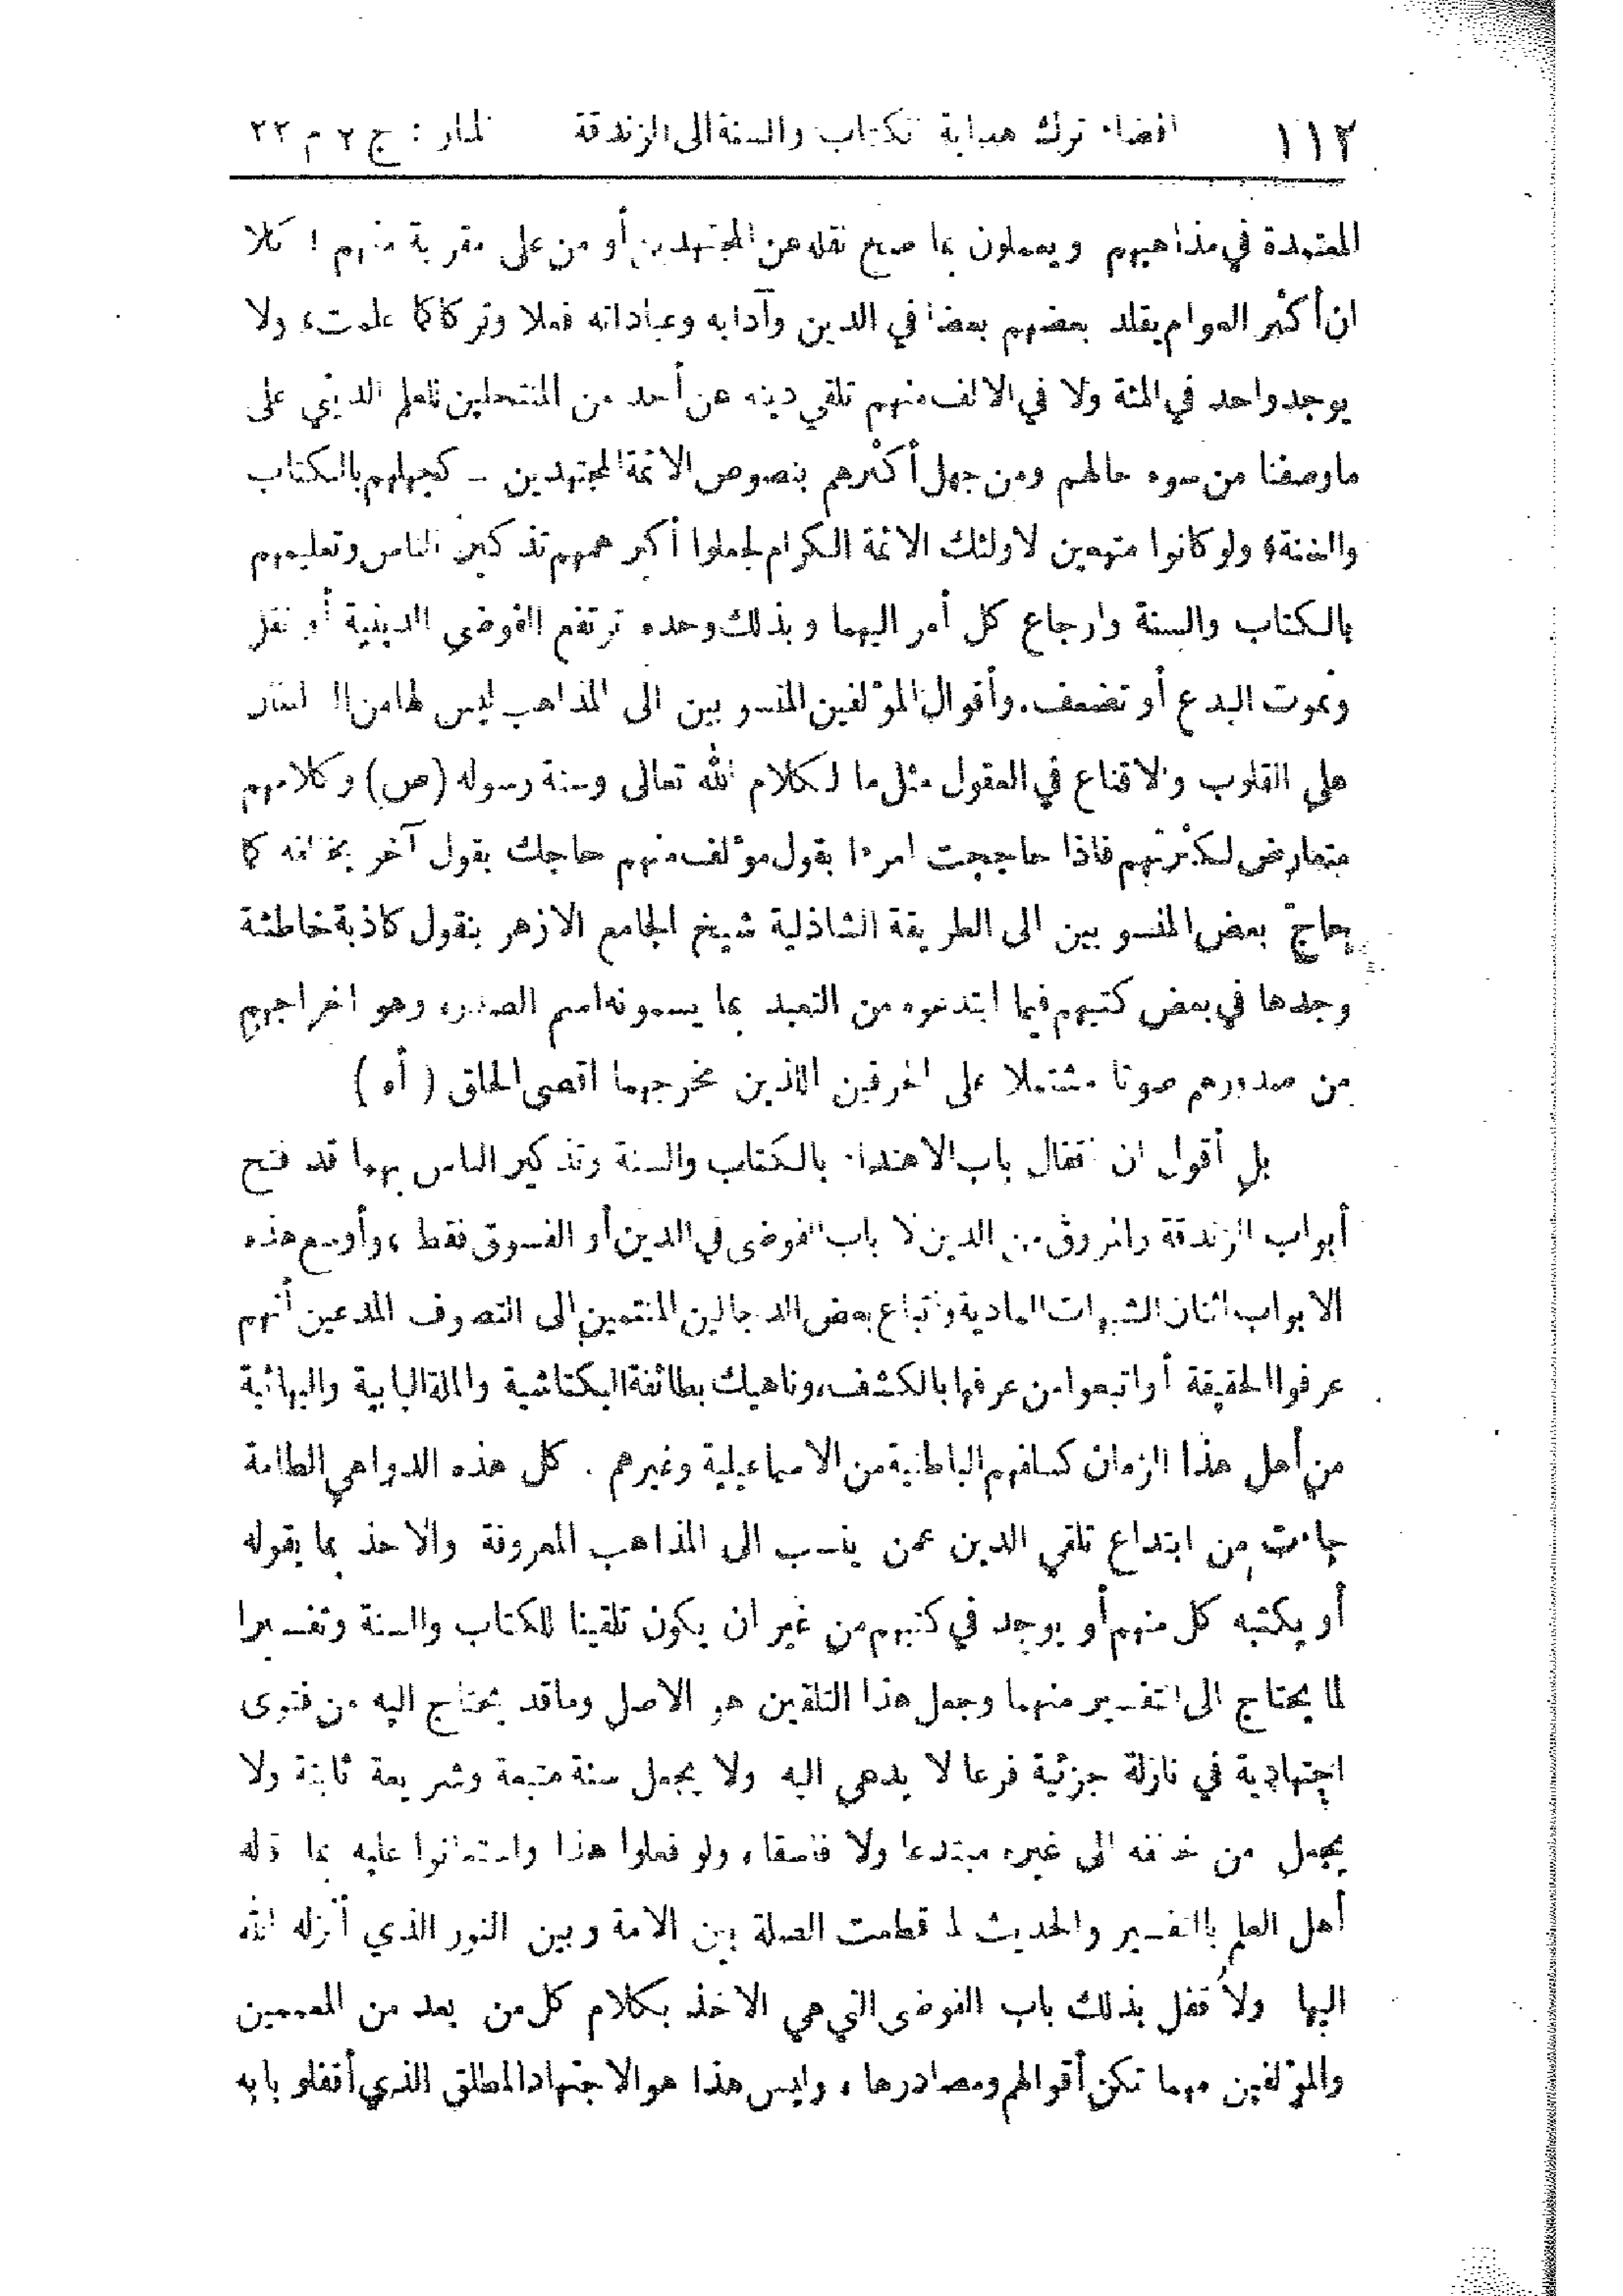 ١١٢ افضاء ترك هداية الكتاب والسنة الى الزندقة المنار : ج ٢ م ٢٢
المعتمدة في مذاهبهم ويعملون بما صح نقله عن المجتهدين أو من على مقربة منهم ! كلا
ان أكثر العوام يقلد بعضهم بعضا في الدين وآدابه وعباداته فعلا وتركا كما علمت، ولا
يوجد واحد في المئة ولا في الالف منهم تلقي دينه عن أحد من المنتحلين للعلم الديني على
ما وصفنا من سوء حالهم ومن جهل أكثرهم بنصوص الائمة المجتهدين - كجهلهم بالكتاب
والسنة، ولو كانوا متبعين لاولئك الائمة الكرام لجعلوا أكبر همهم تذكير الناس وتعليمهم
بالكتاب والسنة وارجاع كل أمر اليهما وبذلك وحده ترتفع الفوضى الدينية أو تقل
وتموت البدع أو تضعف. وأقوال المؤلفين المنسوبين الى المذاهب ليس لها من السلطان
على القلوب والاقناع في العقول مثل ما لكلام الله تعالى وسنة رسوله (ص) وكلامهم
متعارض لكثرتهم فاذا حاججت امرءا بقول مؤلف منهم حاجك بقول آخر يخالفه كما
يحاجّ بعض المنسوبين الى الطريقة الشاذلية شيخ الجامع الازهر بنقول كاذبة خاطئة
وجدها في بعض كتبهم فيما ابتدعوه من التعبد بما يسمونه اسم الصدر، وهو اخراجهم
من صدورهم صوتا مشتملا على الحرفين اللذين مخرجهما اقصى الحلق ( أه )
بل أقول ان اقفال باب الاهتداء بالكتاب والسنة وتذكير الناس بهما قد فتح
أبواب الزندقة والمروق من الدين لا باب الفوضى في الدين أو الفسوق فقط ، وأوسع هذه
الابواب اثنان الشبهات المادية واتباع بعض الدجالين المنتمين إلى التصوف المدعين أنهم
عرفوا الحقيقة أو اتبعوا من عرفها بالكشف، وناهيك بطائفة البكتاشية والملة البابية والبهائية
من أهل هذا الزمان كسلفهم الباطنية من الاسماعيلية وغيرهم . كل هذه الدواهي الطامة
جاءت من ابتداع تلقي الدين عمن ينسب الى المذاهب المعروفة والاخذ بما يقوله
أو يكتبه كل منهم أو يوجد في كتبهم من غير ان يكون تلقينا للكتاب والسنة وتفسيرا
لما يحتاج الى التفسير منهما وجعل هذا التلقين هو الاصل وما قد يحتاج اليه من فتوى
اجتهادية في نازلة جزئية فرعا لا يدعى اليه ولا يجعل سنة متبعة وشريعة ثابتة ولا
يجعل من خالفه الى غيره مبتدعا ولا فاسقا، ولو فعلوا هذا واستعانوا عليه بما قاله
أهل العلم بالتفسير والحديث لما قطعت الصلة بين الامة وبين النور الذي أنزله الله
اليها ولأقفل بذلك باب الفوضى التي هي الاخذ بكلام كل من يعد من المعممين
والمؤلفين مهما تكن أقوالهم ومصادرها ، وليس هذا هو الاجتهاد المطلق الذي أقفلو بابه